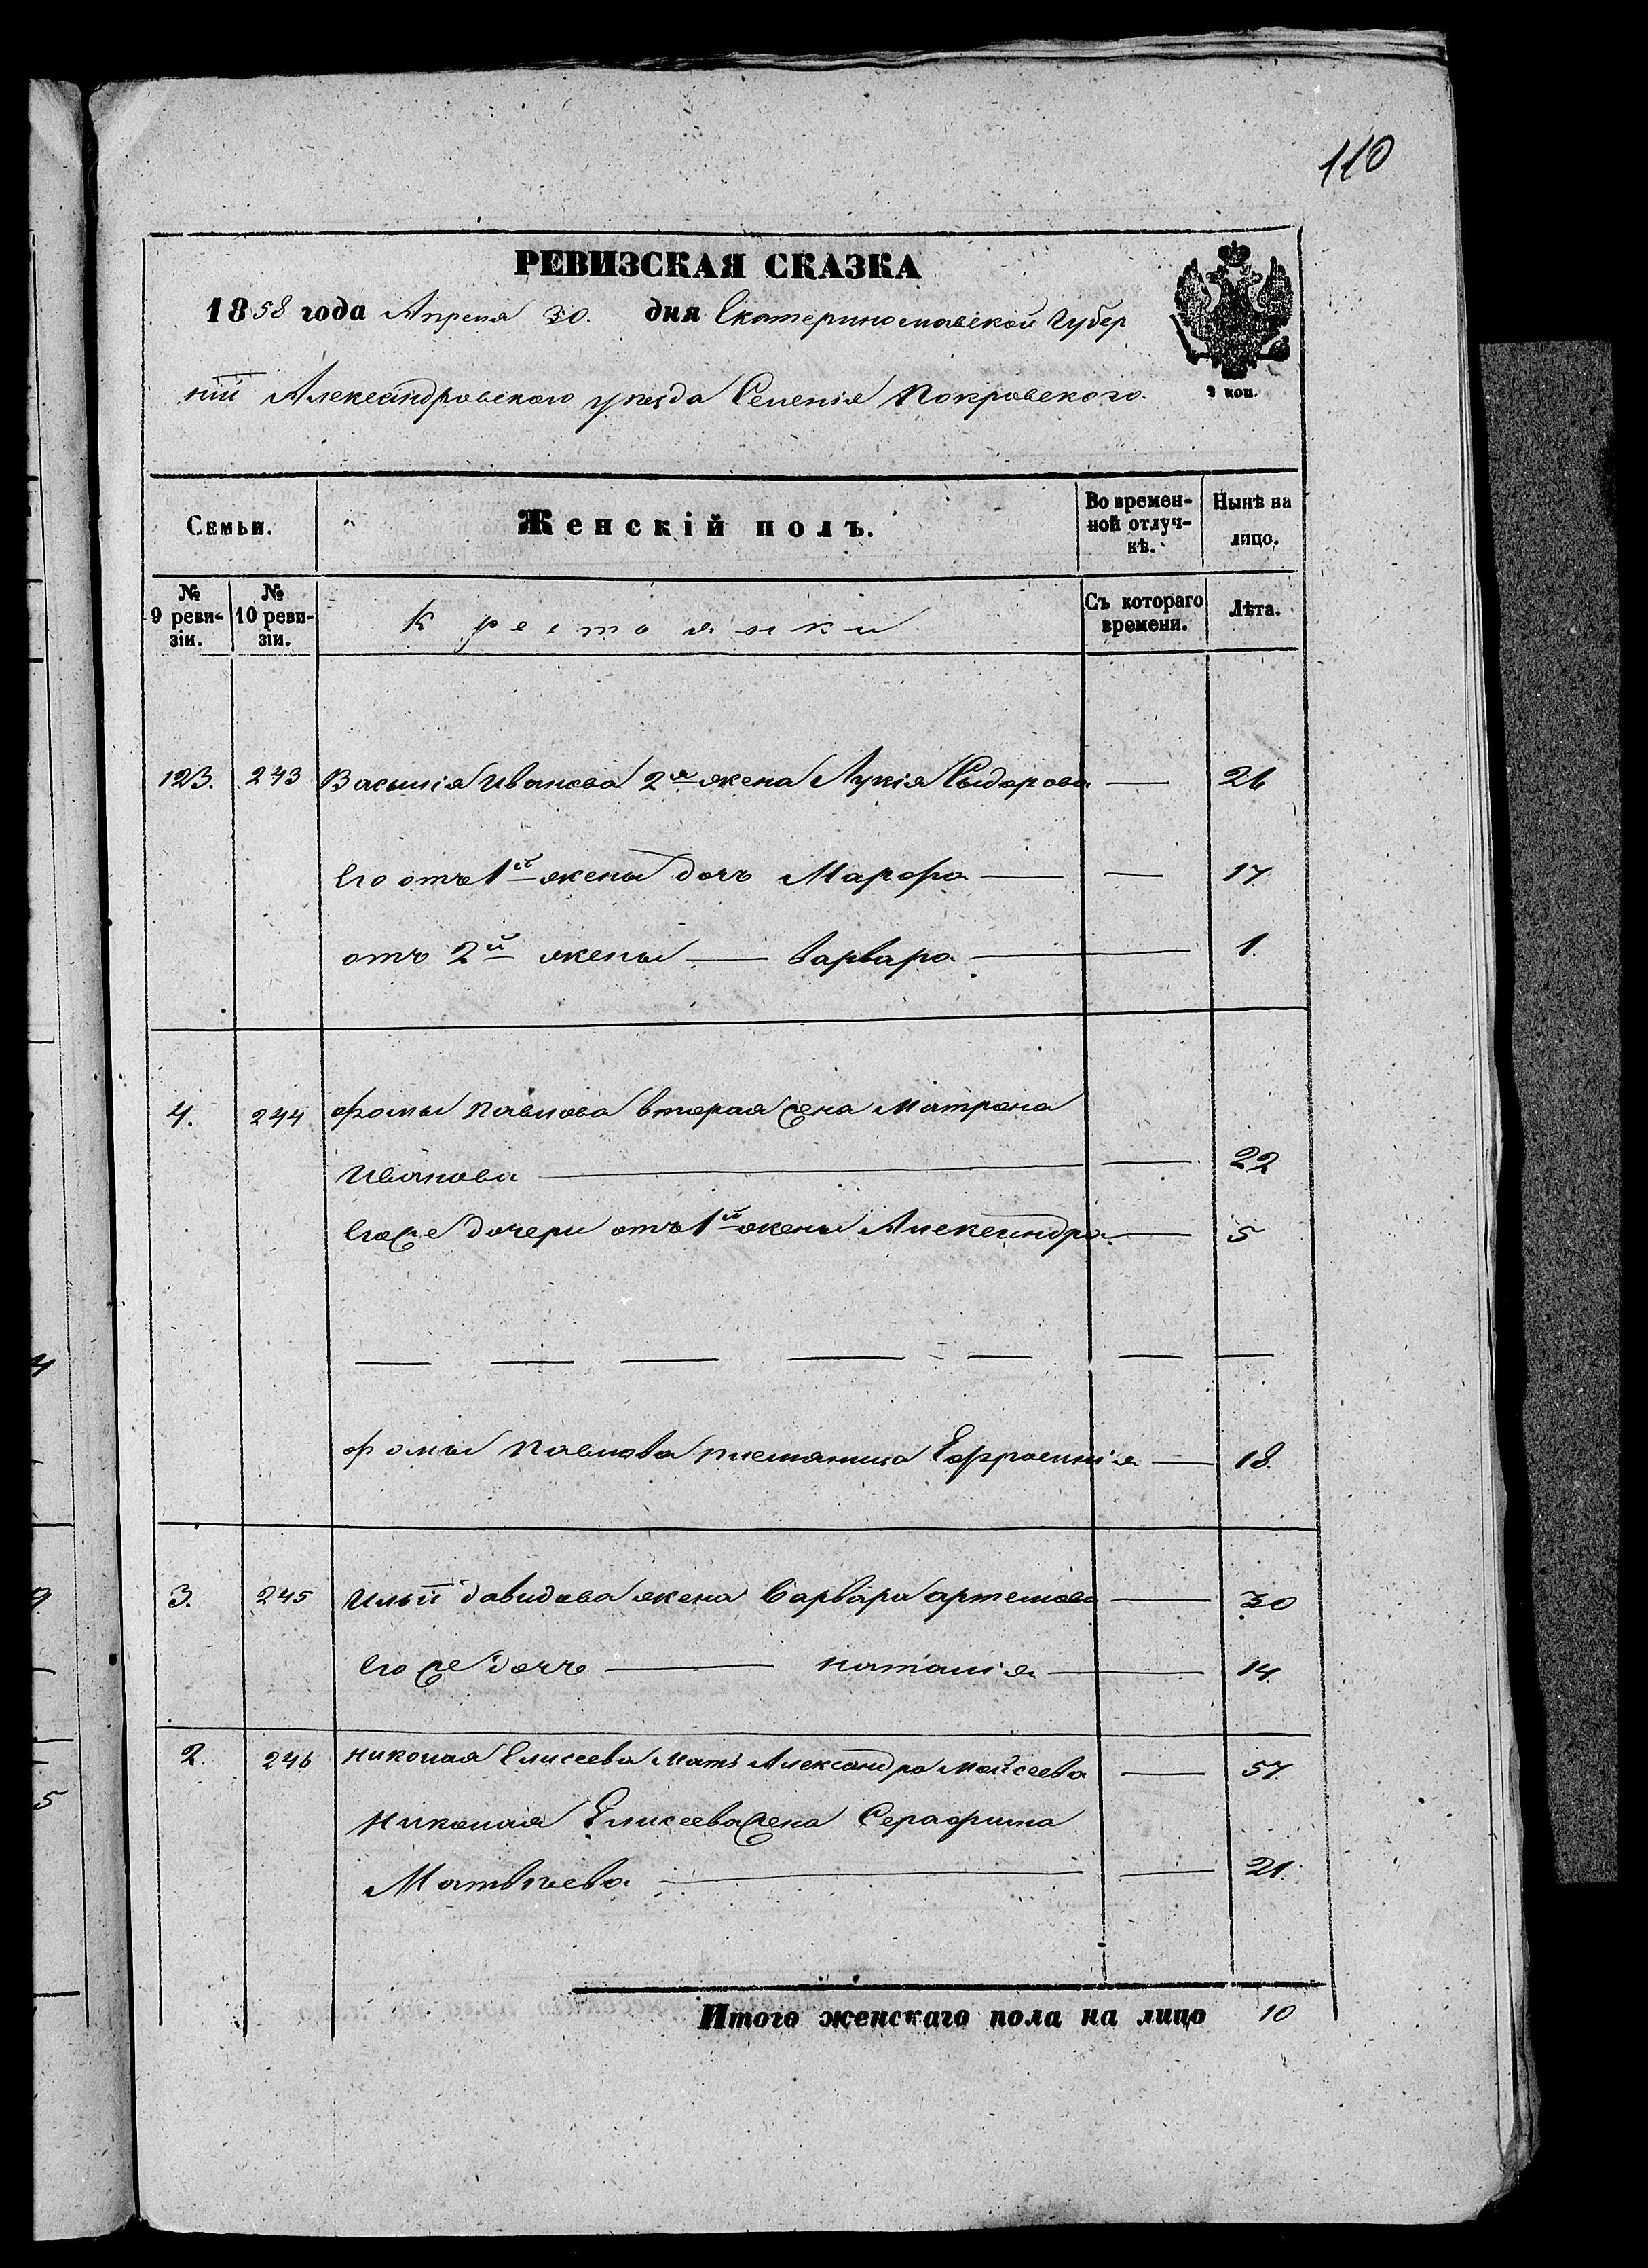 110
РЕВИЗСКАЯ СКАЗКА
1858 года Апреля 30. дня Екатеринославской Губер
нiи Александровского уѣзда Селенiя Покровского.
2 коп.
Семьи. Женскiй полъ. Во времен- Нынѣ на
ной отлуч- лицо.
кѣ.
№ № Крестьянки Съ котораго Лѣта.
9 реви- 10 реви- времени.
зiи. зiи.
123. 243 Василiя Иванова 2я жена Лукiя Сыдорова — 26
Его отъ 1й жены дочь Марфа — — 17.
отъ 2й жены — Варвара — 1.
4. 244 Фомы Павлова вторая жена Матрона
Иванова — — 22
Егоже дочери отъ 1й жены Александра — 5
— — — — — — —
Фомы Павлова племяница Ефросинiя — 18.
3. 245 Ильи давидова жена Варвара артемова — 30
Егоже дочь — наталiя — 14.
2. 246 николая Елисеева Мать Александра Мойсеева — 57.
Николая Елисеева жена Серафима
Матвѣева — — 21.
Итого женскаго пола на лицо 10